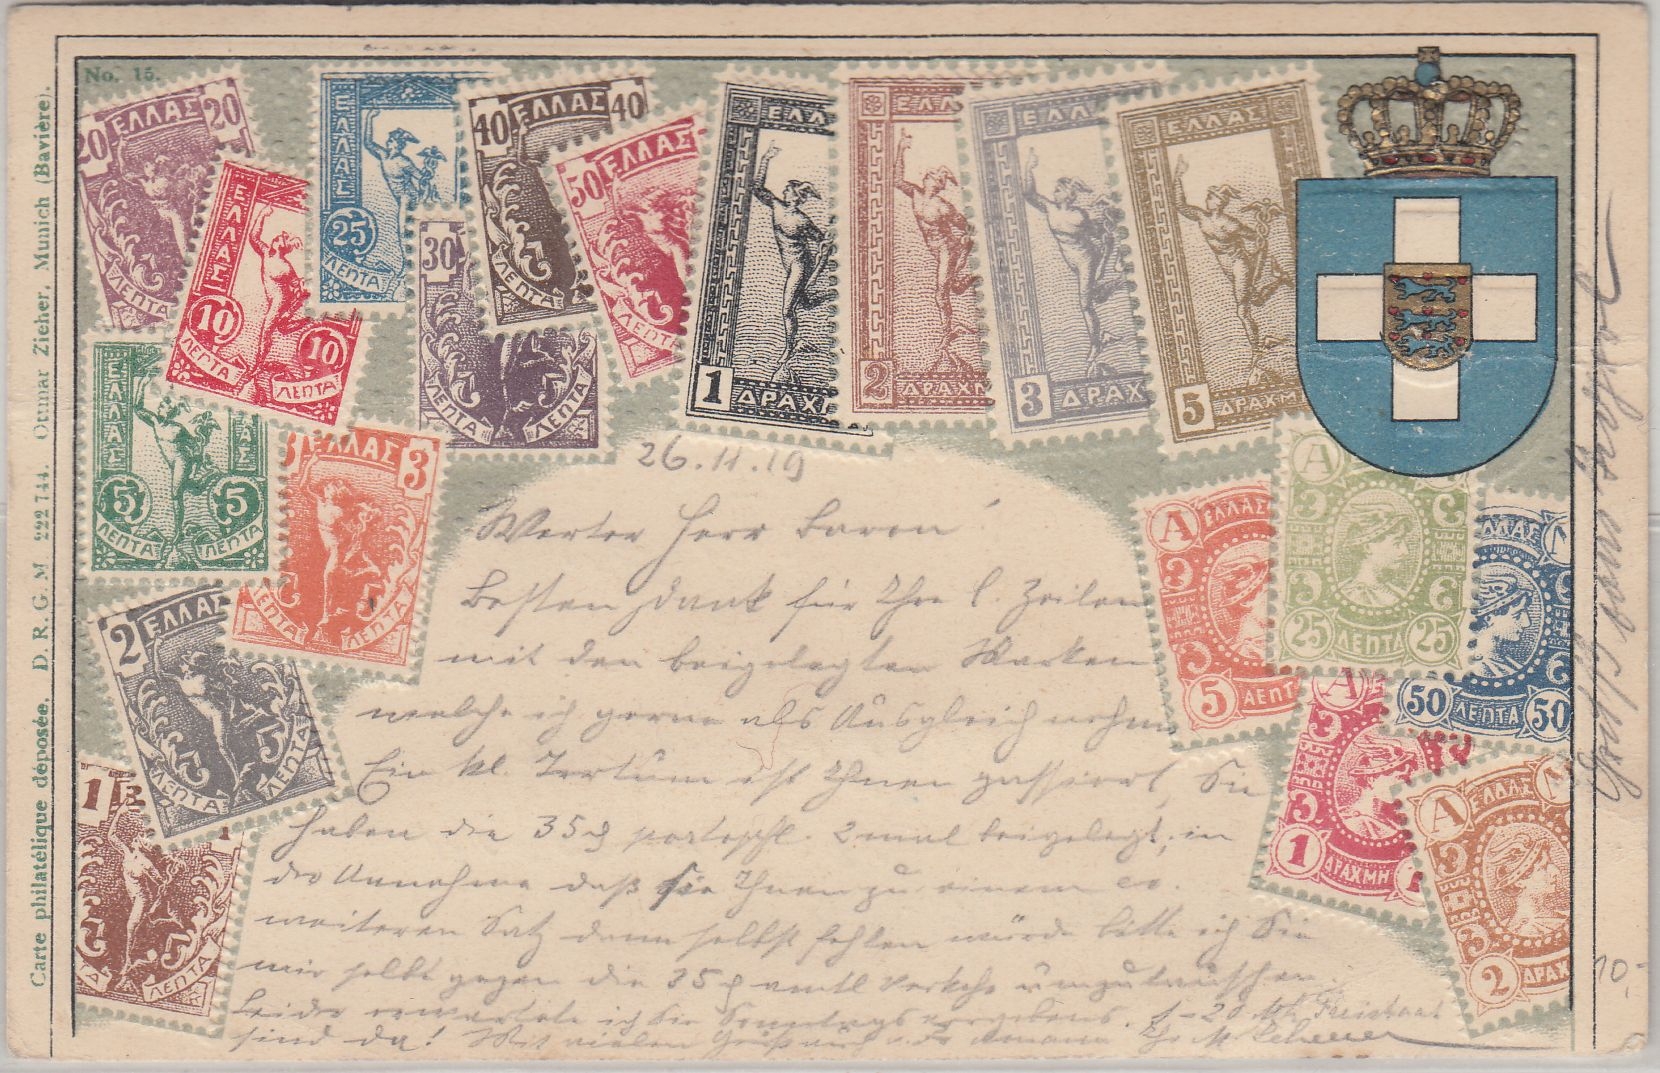 No. 15.
Carte philatélique déposée. D. R. G. M. 222744. Ottmar Zieher, Munich (Bavière).
20 ΕΛΛΑΣ 20
ΛΕΠΤΑ
ΕΛΛΑΣ
10 10
ΛΕΠΤΑ ΛΕΠΤΑ
ΕΛΛΑΣ
25
ΛΕΠΤΑ
30
ΛΕΠΤΑ ΛΕΠΤΑ
40 ΕΛΛΑΣ 40
ΛΕΠΤΑ
50 ΕΛΛΑΣ
ΛΕΠΤΑ
ΕΛΛ
1 ΔΡΑΧ
ΕΛΛ
2 ΔΡΑΧΜ
ΕΛΛ
3 ΔΡΑΧ
ΕΛΛΑΣ
5 ΔΡΑΧΜ
ΕΛΛΑΣ ΑΣ
5 5
ΛΕΠΤΑ ΛΕΠΤΑ
3 ΕΛΛΑΣ 3
ΛΕΠΤΑ ΛΕΠΤΑ
2 ΕΛΛΑΣ
ΛΕΠΤΑ ΛΕΠΤΑ
1 Ε
1
ΤΑ ΛΕΠΤΑ
Α ΕΛΛΑΣ
5 ΛΕΠΤ
Α
25 ΛΕΠΤΑ 25
ΛΛΑΣ
50 ΛΕΠΤΑ 50
Α
1 ΔΡΑΧΜΗ 1
Α ΕΛΛΑΣ Α
2 ΔΡΑΧ
26.11.19
Werter Herr Baron
Besten Dank für Ihre l. Zeilen
mit den beigelegten Marken
welche ich gerne als Ausgleich nehme
Ein kl. Irrtum ist Ihnen passiert, Sie
haben die 35 ₰ 2mal beigelegt, in
der Annahme daß sie Ihnen zu einem ev.
weiteren Satz dann selbst fehlen würde bitte ich Sie
mir selbe gegen die 35 ₰ umzutauschen.
Leider erwartete ich Sie Sonntags vergebens. 1-20 Mk Freistaat
sind da! Mit vielen
10.-